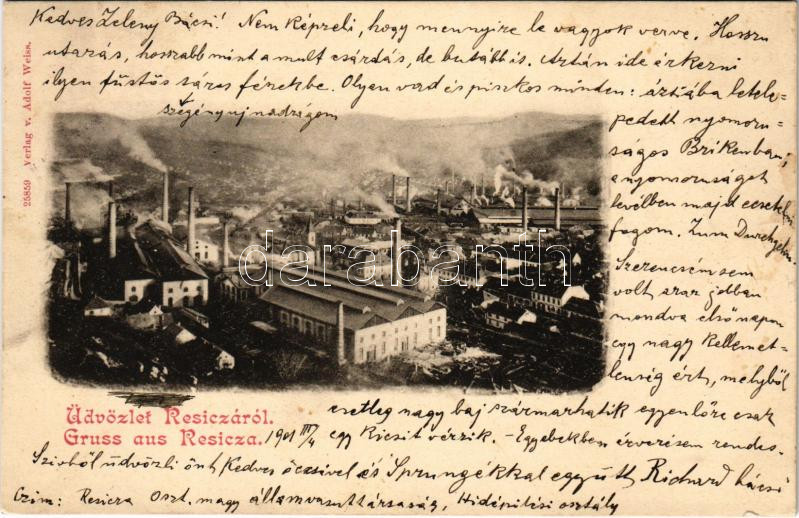 Kedves Zeleny Bácsi! Nem képzeli, hogy mennyire le vagyok verve. Hosszu
utazás, hosszabb mint a mult csárdás, de butább is. Aztán ide érkezni
ilyen füstös sáros fészekbe. Olyan vad és piszkos minden:
szegény uj nadrágom
letele-
pedett nyomoru-
ságos
a nyomoruságot
levélben majd ecsetelni
fogom. Zum
Szerencsém sem
volt, szar jobban
mondva első napon
egy nagy kellemet-
lenség ért, melyből
esetleg nagy baj származhatik egyenlőre csak
egy kicsit vérzik. - Egyebekben érverésem rendes.
Szivből üdvözli önt kedves öccsivel és Sprungékkal együtt Richard bácsi
Czim: Resicza Oszt. magy államvasuttársaság, Hidépitési osztály
Üdvözlet Resiczáról.
Gruss aus Resicza.
1901 III/4
25859 Verlag v. Adolf Weiss.
darabanth